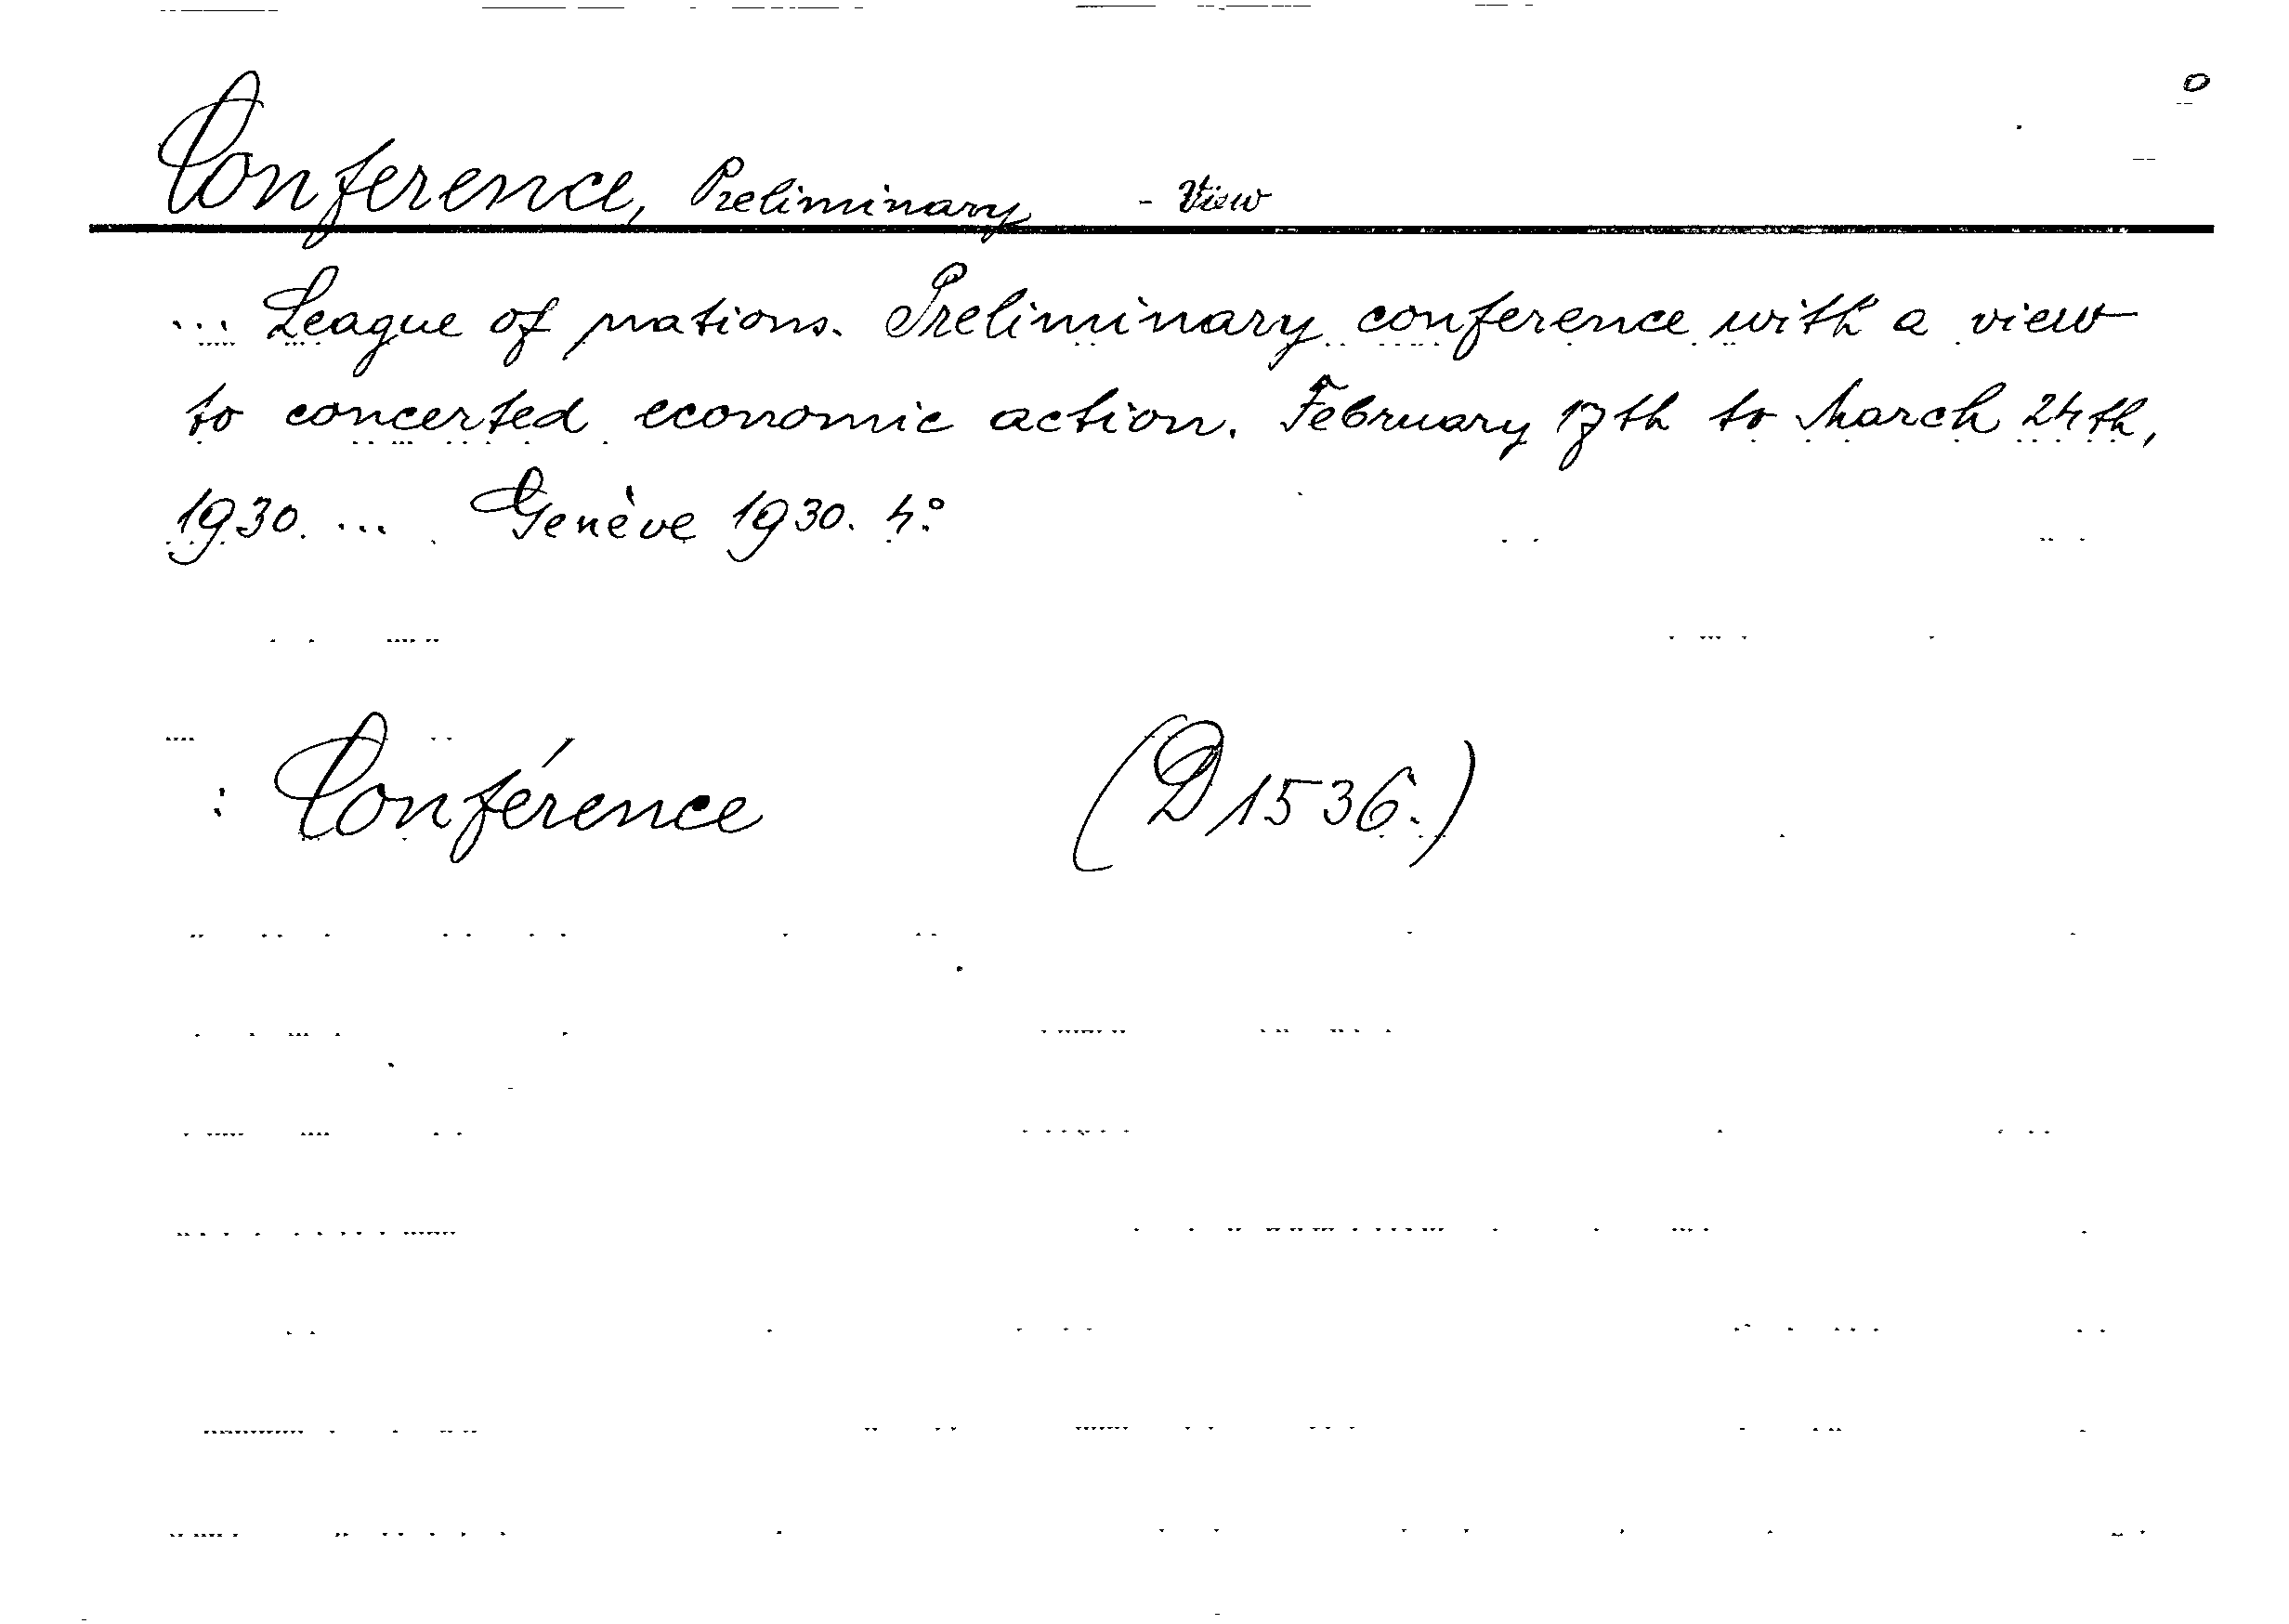 Conference, Preliminary - View
... League of nations. Preliminary conference with a view
to concerted economic action. February 17th to March 24th,
1930. ... Genève 1930. 4:o
: Conférence (D 1536.)